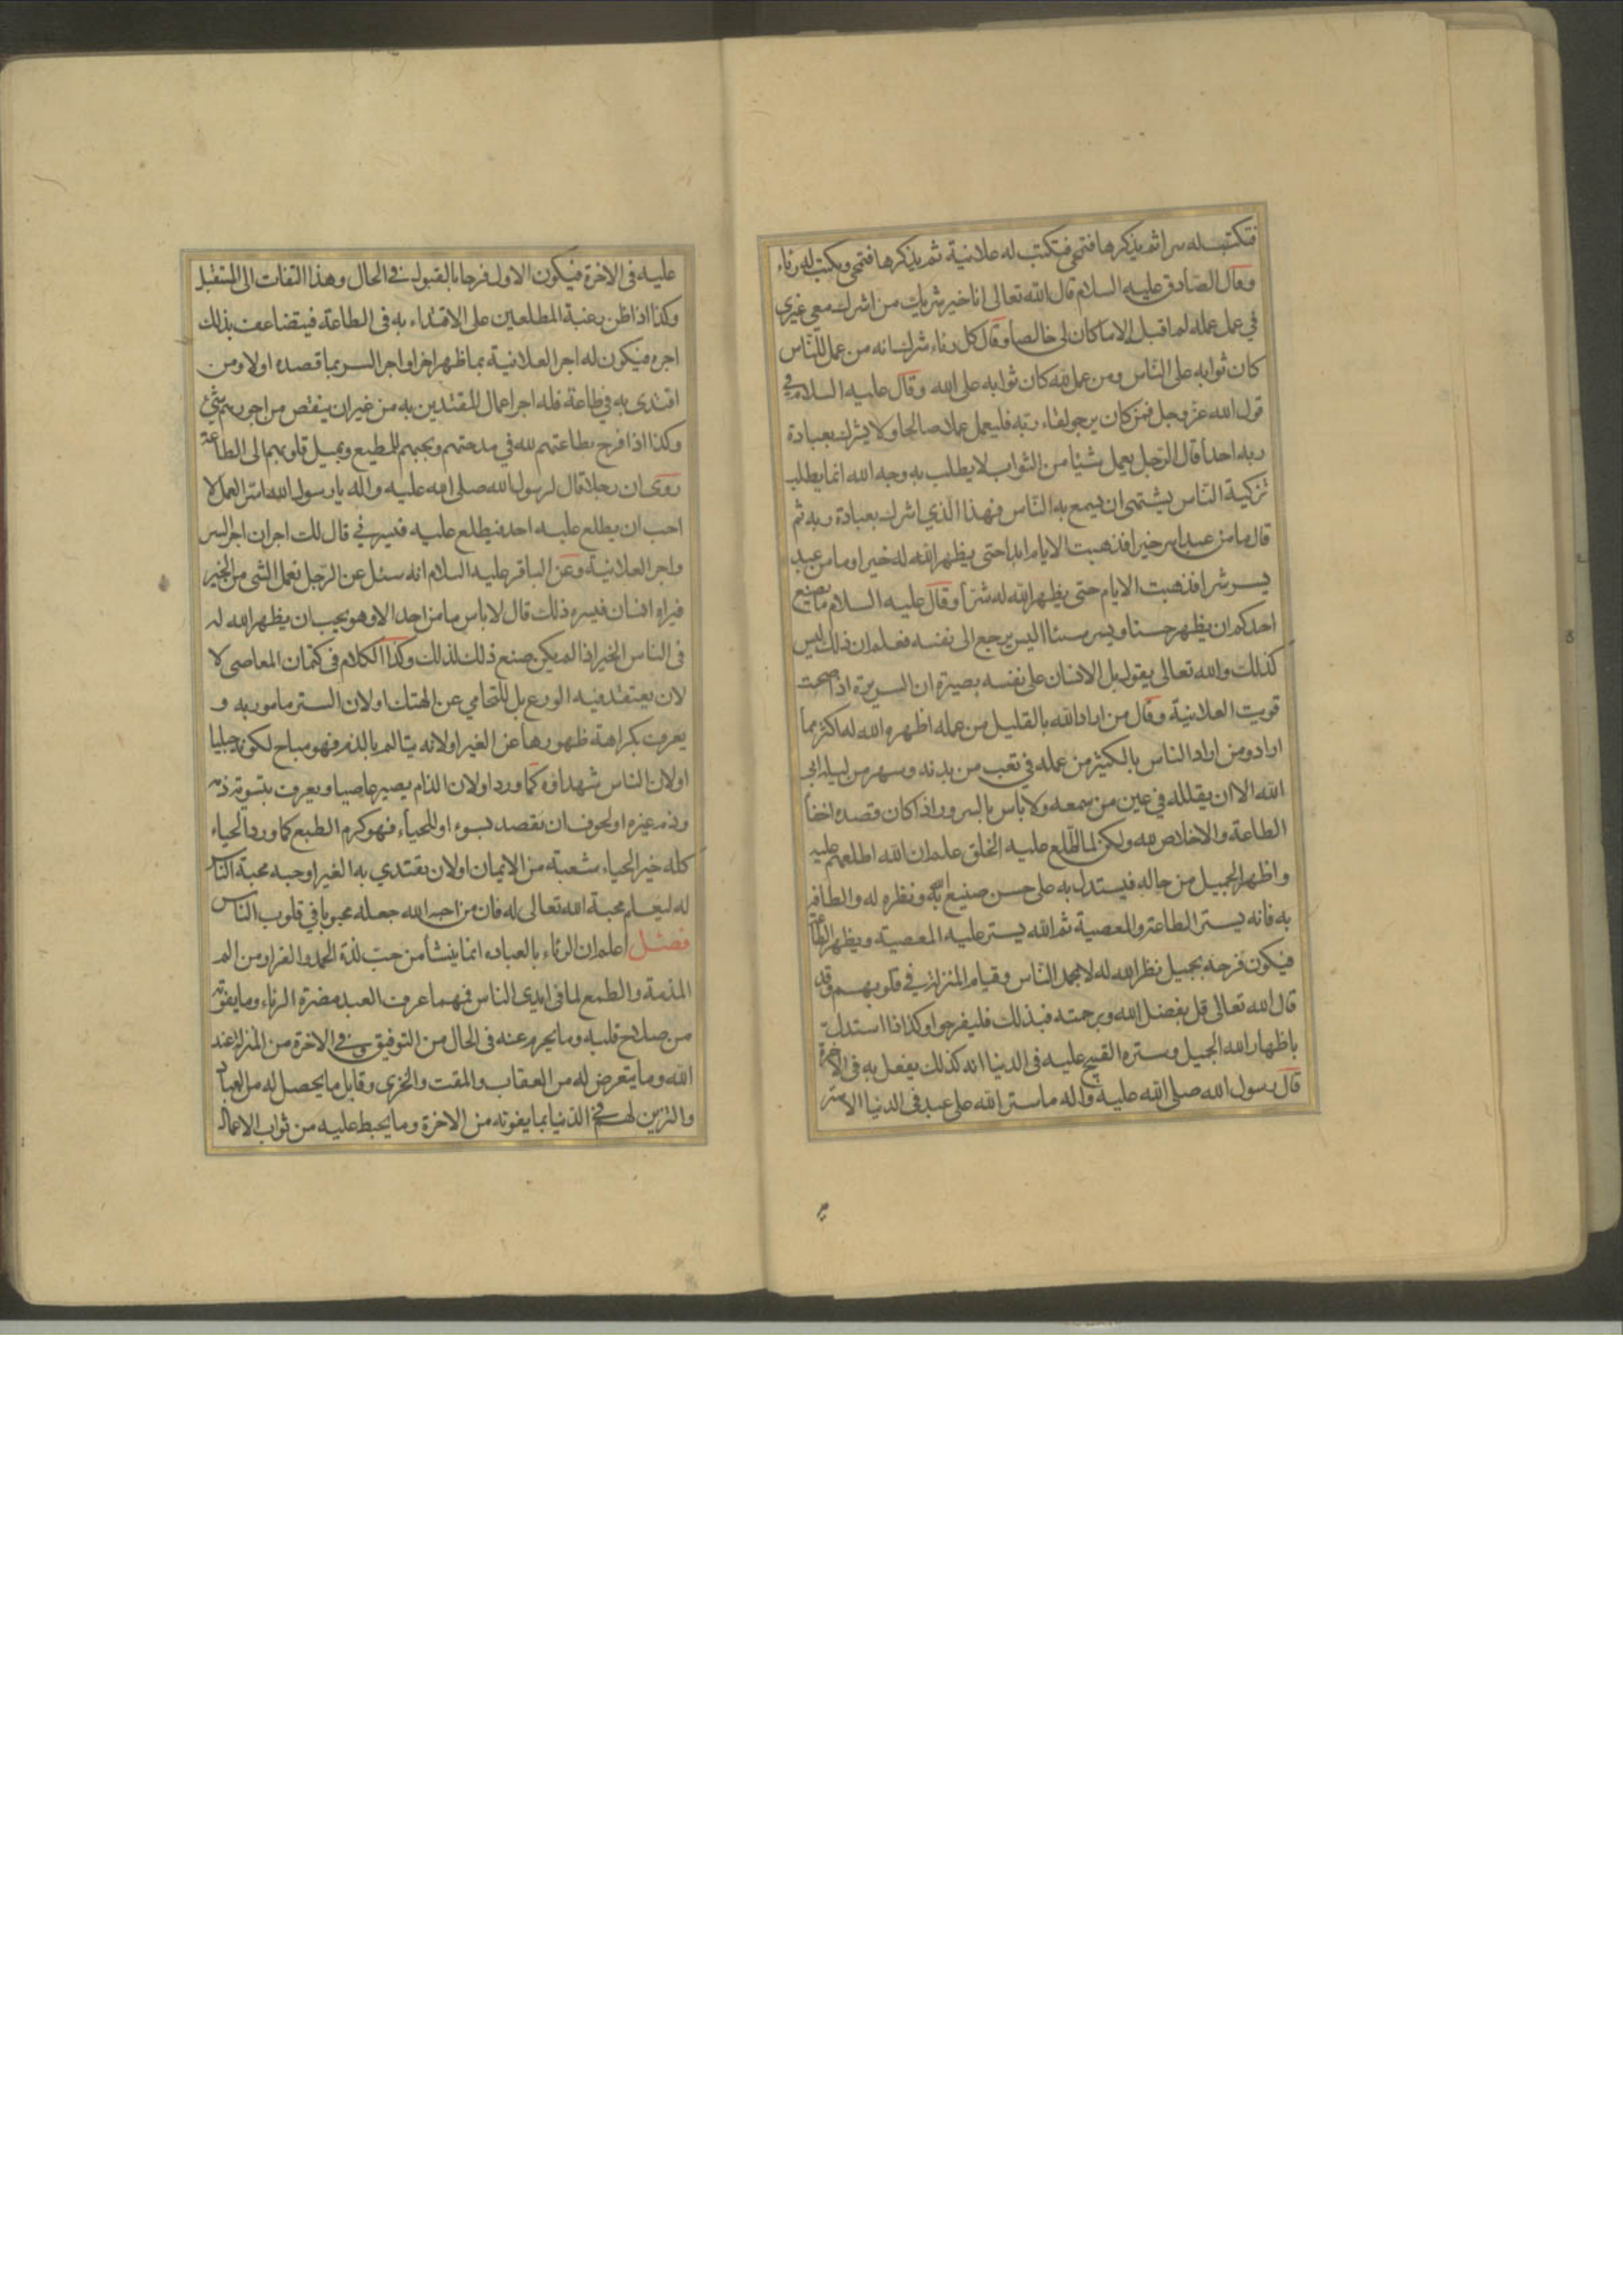 فتكتب له سرا ثم يذكرها فتمحى فتكتب له علانية ثم يذكرها فتمحى ويكتب له رئاء
وقال الصادق عليه السلام قال الله تعالى انا خير شريك من اشرك معي غيري
في عمل عمله لم اقبل الا ما كان لي خالصا وقال كل رئاء شرك انه من عمل للناس
كان ثوابه على الناس ومن عمل لله كان ثوابه على الله وقال عليه السلام في
قول الله عز وجل فمن كان يرجو لقاء ربه فليعمل عملا صالحا ولا يشرك بعبادة
ربه احدا قال الرجل يعمل شيئا من الثواب لا يطلب به وجه الله انما يطلب
تزكية الناس يشتهي ان يسمع به الناس فهذا الذي اشرك بعبادة ربه ثم
قال ما من عبد اسر خيرا فذهبت الايام ابدا حتى يظهر الله له خيرا وما من عبد
يسر شرا فذهبت الايام حتى يظهر الله له شرا وقال عليه السلام ما يصنع
احدكم ان يظهر حسنا ويسر سيئا اليس يرجع الى نفسه فعلم ان ذلك ليس
كذلك والله تعالى يقول بل الانسان على نفسه بصيرة ان السريرة اذا صحت
قويت العلانية وقال من اراد الله بالقليل من عمله اظهره الله له اكثر مما
اراد ومن اراد الناس بالكثير من عمله في تعب من بدنه وسهر من ليله ابى
الله الا ان يقلله في عين من سمعه ولا باس بالسرور اذا كان قصده اخفا
الطاعة والاخلاص لله ولكن لما اطلع عليه الخلق علم ان الله اطلعهم عليه
واظهر الجميل من حاله فيستدل به على حسن صنيع الله ونظره له والطافه
به فانه يستر الطاعة والمعصية ثم الله يستر عليه المعصية ويظهر الطاعة
فيكون فرحه بجميل نظر الله له لا بحمد الناس وقيام المنزلة في قلوبهم وقد
قال الله تعالى قل بفضل الله وبرحمته فبذلك فليفرحوا وكذا اذا استدل
باظهار الله الجميل وستره القبيح عليه في الدنيا انه كذلك يفعل به في الاخرة
قال رسول الله صلى الله عليه واله ما ستر الله على عبد في الدنيا الا ستر
عليه في الاخرة فيكون الاول فرحا بالقبول في الحال وهذا التفات الى المستقبل
وكذا اذا ظن رغبة المطلعين على الاقتداء به في الطاعة فيتضاعف بذلك
اجره فيكون له اجر العلانية بما ظهر اخرا واجر السر بما قصده اولا ومن
اقتدى به في طاعة فله اجر اعمال المقتدين به من غير ان ينقص من اجورهم شئ
وكذا اذا فرح بطاعتهم لله في مدحتهم وبحبهم للمطيع وبميل قلوبهم الى الطاعة
روى ان رجلا قال لرسول الله صلى الله عليه واله يا رسول الله اسر العمل لا
احب ان يطلع عليه احد فيطلع عليه فيسرني قال لك اجران اجر السر
واجر العلانية وعن الباقر عليه السلام انه سئل عن الرجل يعمل الشئ من الخير
فيراه انسان فيسره ذلك قال لا باس ما من احد الا وهو يحب ان يظهر الله له
في الناس الخير اذا لم يكن صنع ذلك لذلك وكذا الكلام في كتمان المعاصي لا
لان يعتقد فيه الورع بل للتحامي عن الهتك او لان الستر مامور به و
يعرف بكراهة ظهورها عن الغير او لانه يتالم بالذم فهو مباح لكونه جبليا
او لان الناس شهداؤه كما ورد او لان الذام يصير عاصيا ويعرف بتسوية ذمه
وذم غيره او لخوف ان يقصد بسوء او للحياء فهو كرم الطبع كما ورد الحياء
كله خير الحياء شعبة من الايمان او لان يقتدي به الغير او حبه محبة الناس
له ليعلم محبة الله تعالى له فان من احبه الله جعله محبوبا في قلوب الناس
فصل اعلم ان الرئاء بالعباده انما ينشأ من حب لذة الحمد والفرار من الم
المذمة والطمع لما في ايدي الناس فمهما عرف العبد مضرة الرئاء وما يفوته
من صلاح قلبه وما يحرم عنه في الحال من التوفيق وفي الاخرة من المنزلة عند
الله وما يتعرض له من العقاب والمقت والخزي وقابل ما يحصل له من العباد
والتزين لهم في الدنيا بما يفوته من الاخرة وما يحبط عليه من ثواب الاعمال